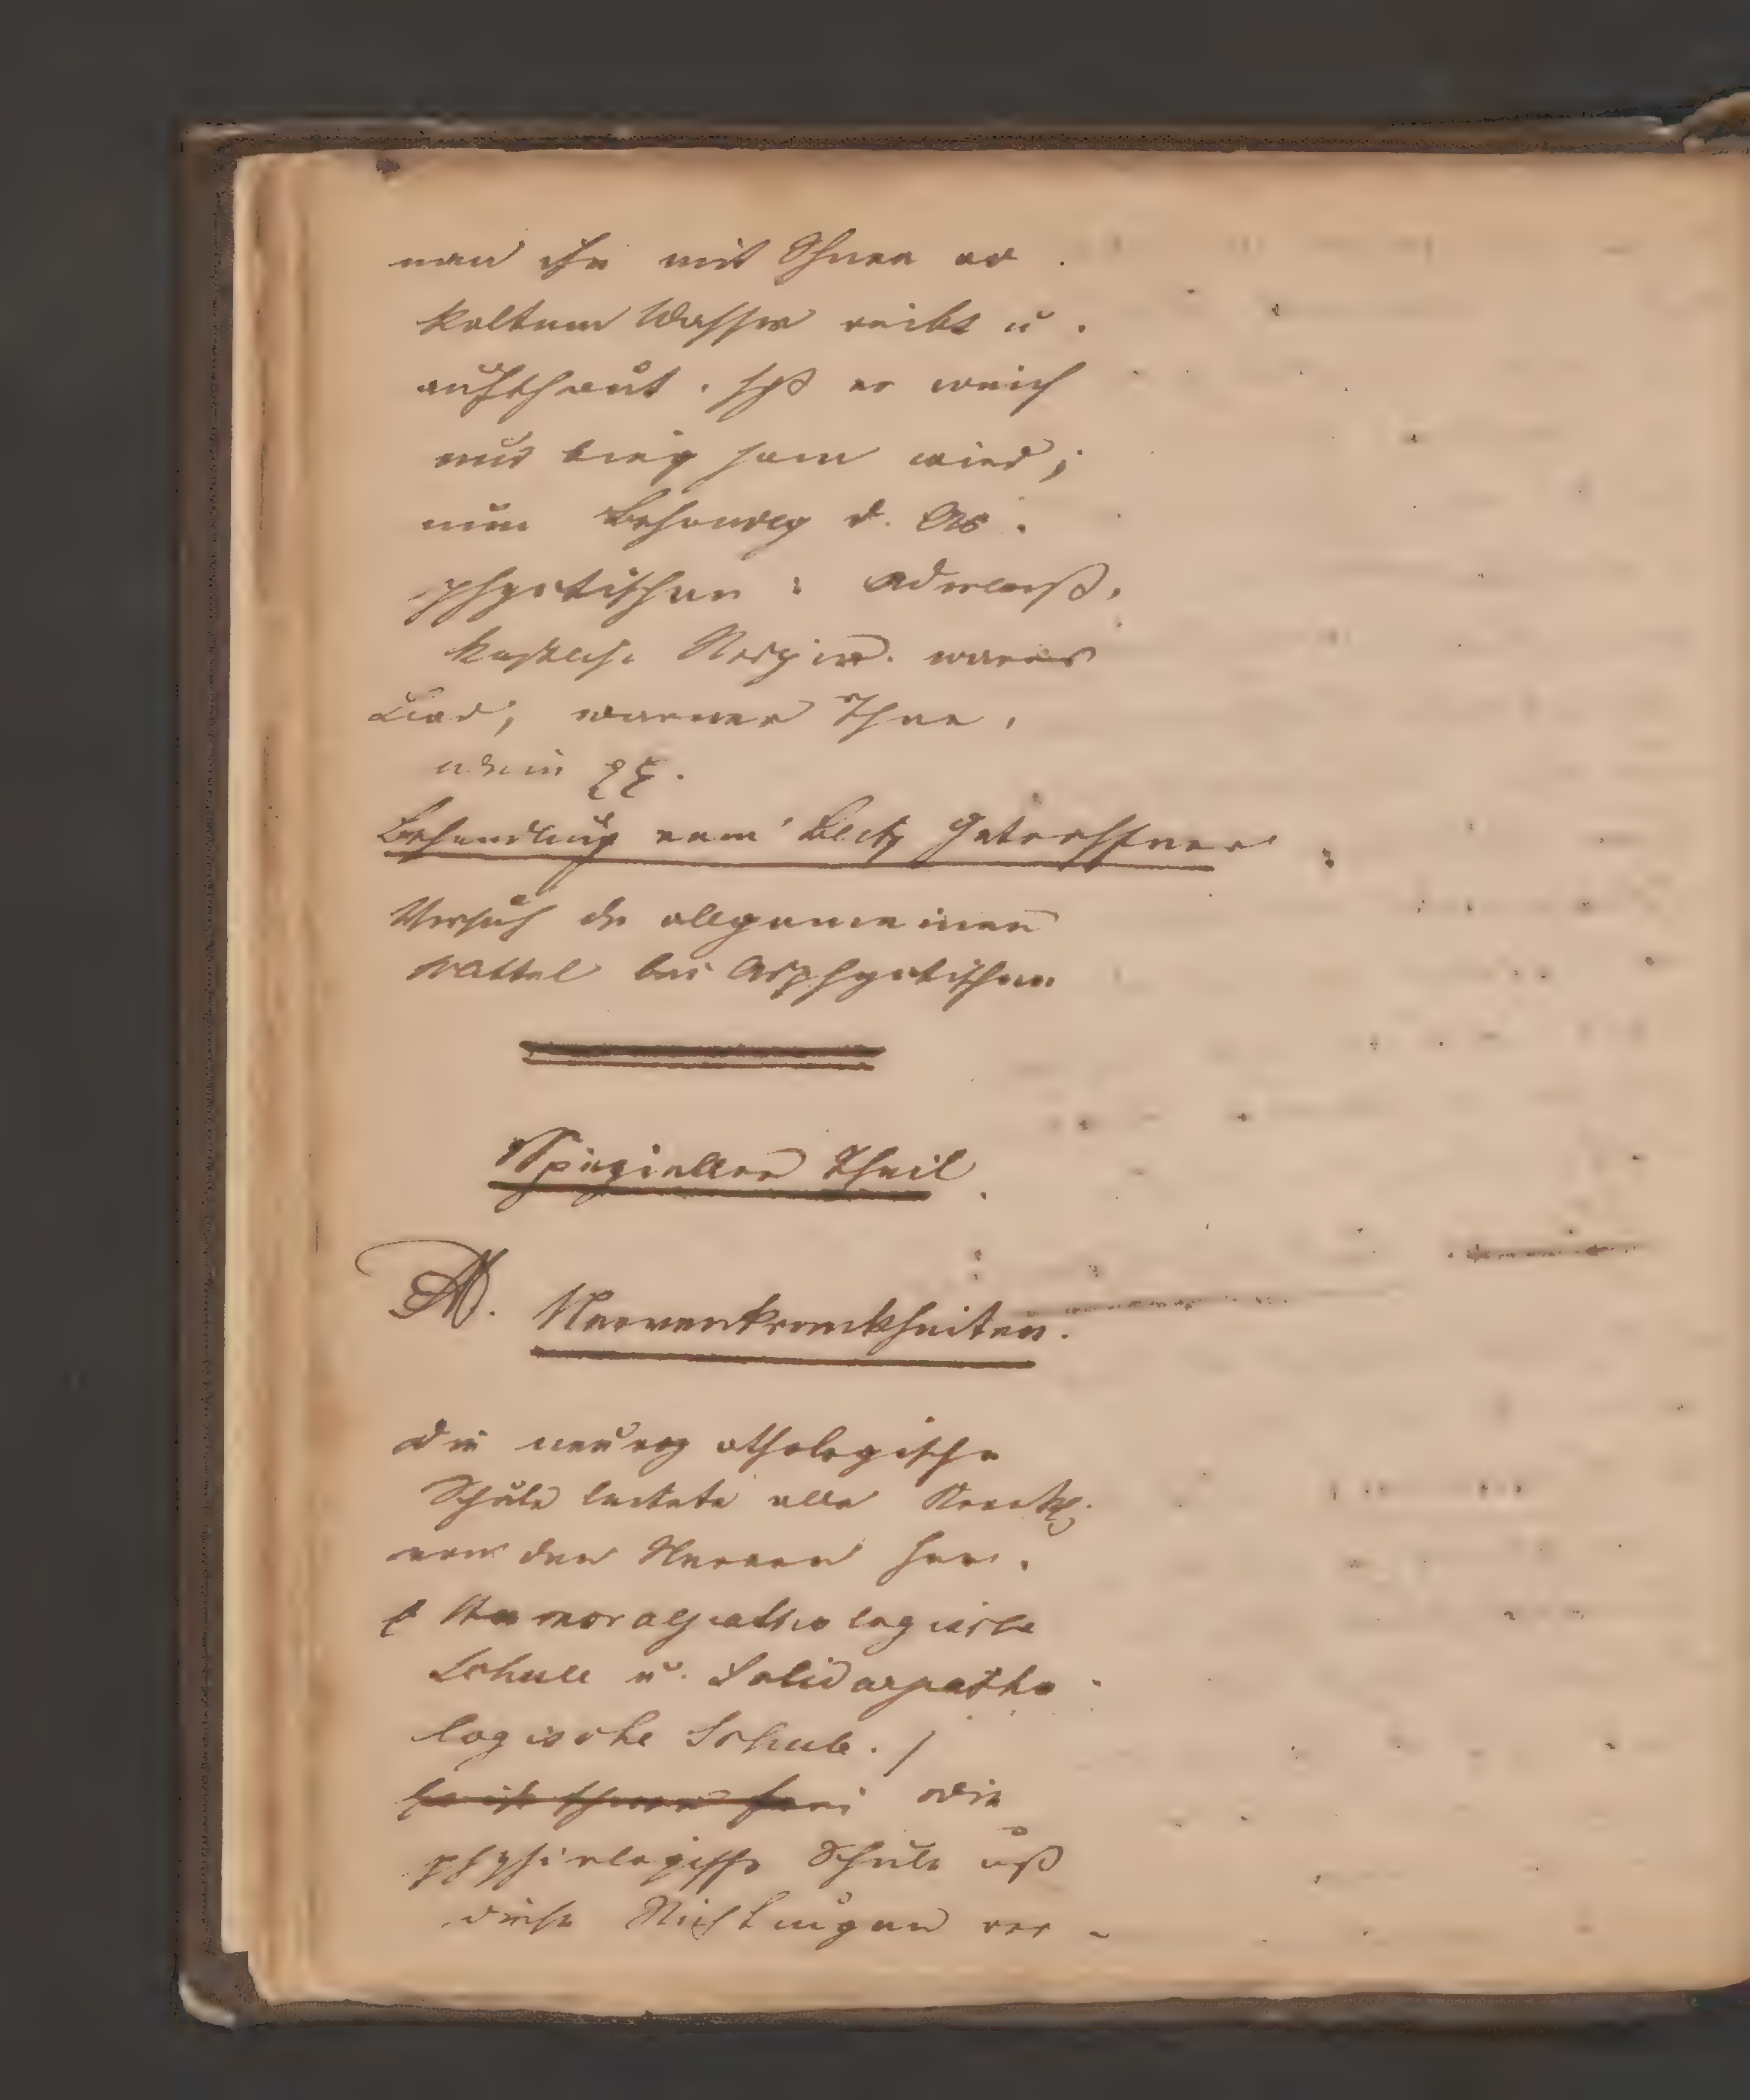 man ihn mit Schnee od.
kaltem Wasser reibt u.
aufthaut. bis er weich
und bieg sam wird;
nun Behandlg d. As-
phyctischen: Aderlaß,
künstliche Respir. warmes
Bad, warmer Thee,
Wein
Behandlung vom Blitz Getroffener:
Versuch der allgemeinen
Mittel bei Asphyctischen
Spezieller Theil.
A. Nervenkrankheiten.
Die neuropathologische
Schule leitete alle Krankh.
von den Nerven her.
Humoralpathologische
Schule u. Solidarpatho-
logische Schule. /
die
physiologische Schule
diese Richtungen ver-